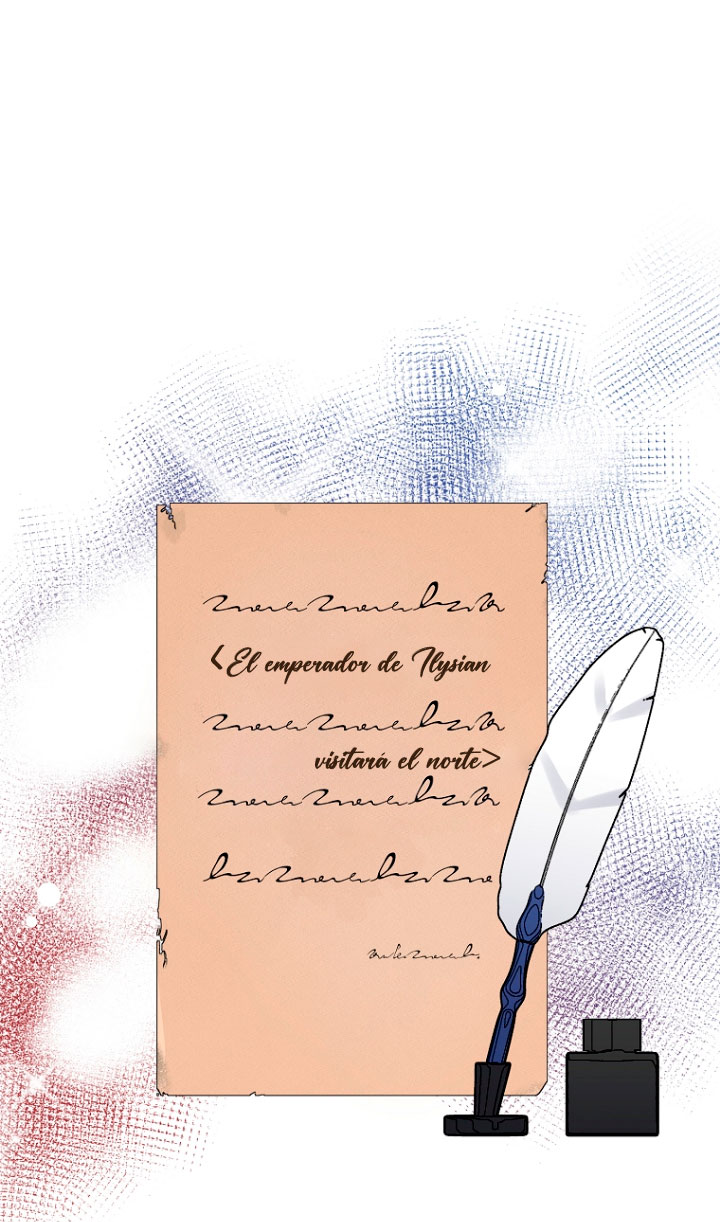 <El emperador de Ilysian
visitará el norte>